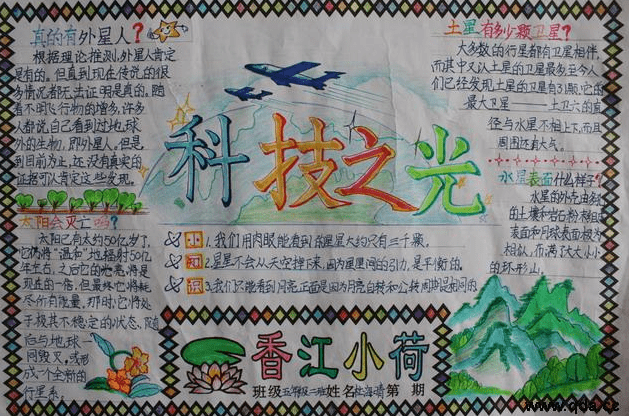 真的有外星人?
根据理论推测,外星人肯定
是有的。但直到现在传说的很
多情况都无法证明是真的。随
着不明飞行物的增多,许多
人都说,自己看到过地球
外的生物,即外星人。但是,
到目前为止,还没有真实的
证据可以肯定这些发现。
太阳会灭亡吗?
太阳已有大约50亿岁了,
它仍将"温和"地辐射50亿
年左右。之后它的光亮将是
现在的一倍,但最终它将耗
尽所有能量,那时它将处
于极其不稳定的状态,随
后与地球一
同毁灭,或形
成一个全新的
行星系。
科技之光
小知识
1.我们用肉眼能看到的星星大约只有三千颗。
2.星星不会从天空掉下来,因为星星间的引力,是平衡的。
3.我们只能看到月亮正面是因为月亮自转和公转周期是相同的
土星有多少颗卫星?
大多数的行星都有卫星相伴,
而其中又以土星的卫星最多至今人
们已经发现土星的卫星有31颗,它的
最大卫星——土卫六的直
径与水星不相上下,而且
周围还有大气。
水星表面什么样子?
水星的外壳由多孔
的土壤和岩石粉末组成
表面和月球表面极为
相似,布满了大大小小
的环形山。
香江小荷
班级五年级二班姓名 第 期
www.qda.cc